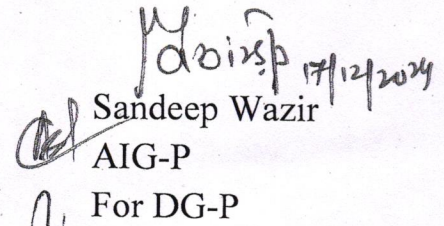 17/12/2024
Sandeep Wazir
AIG-P
For DG-P